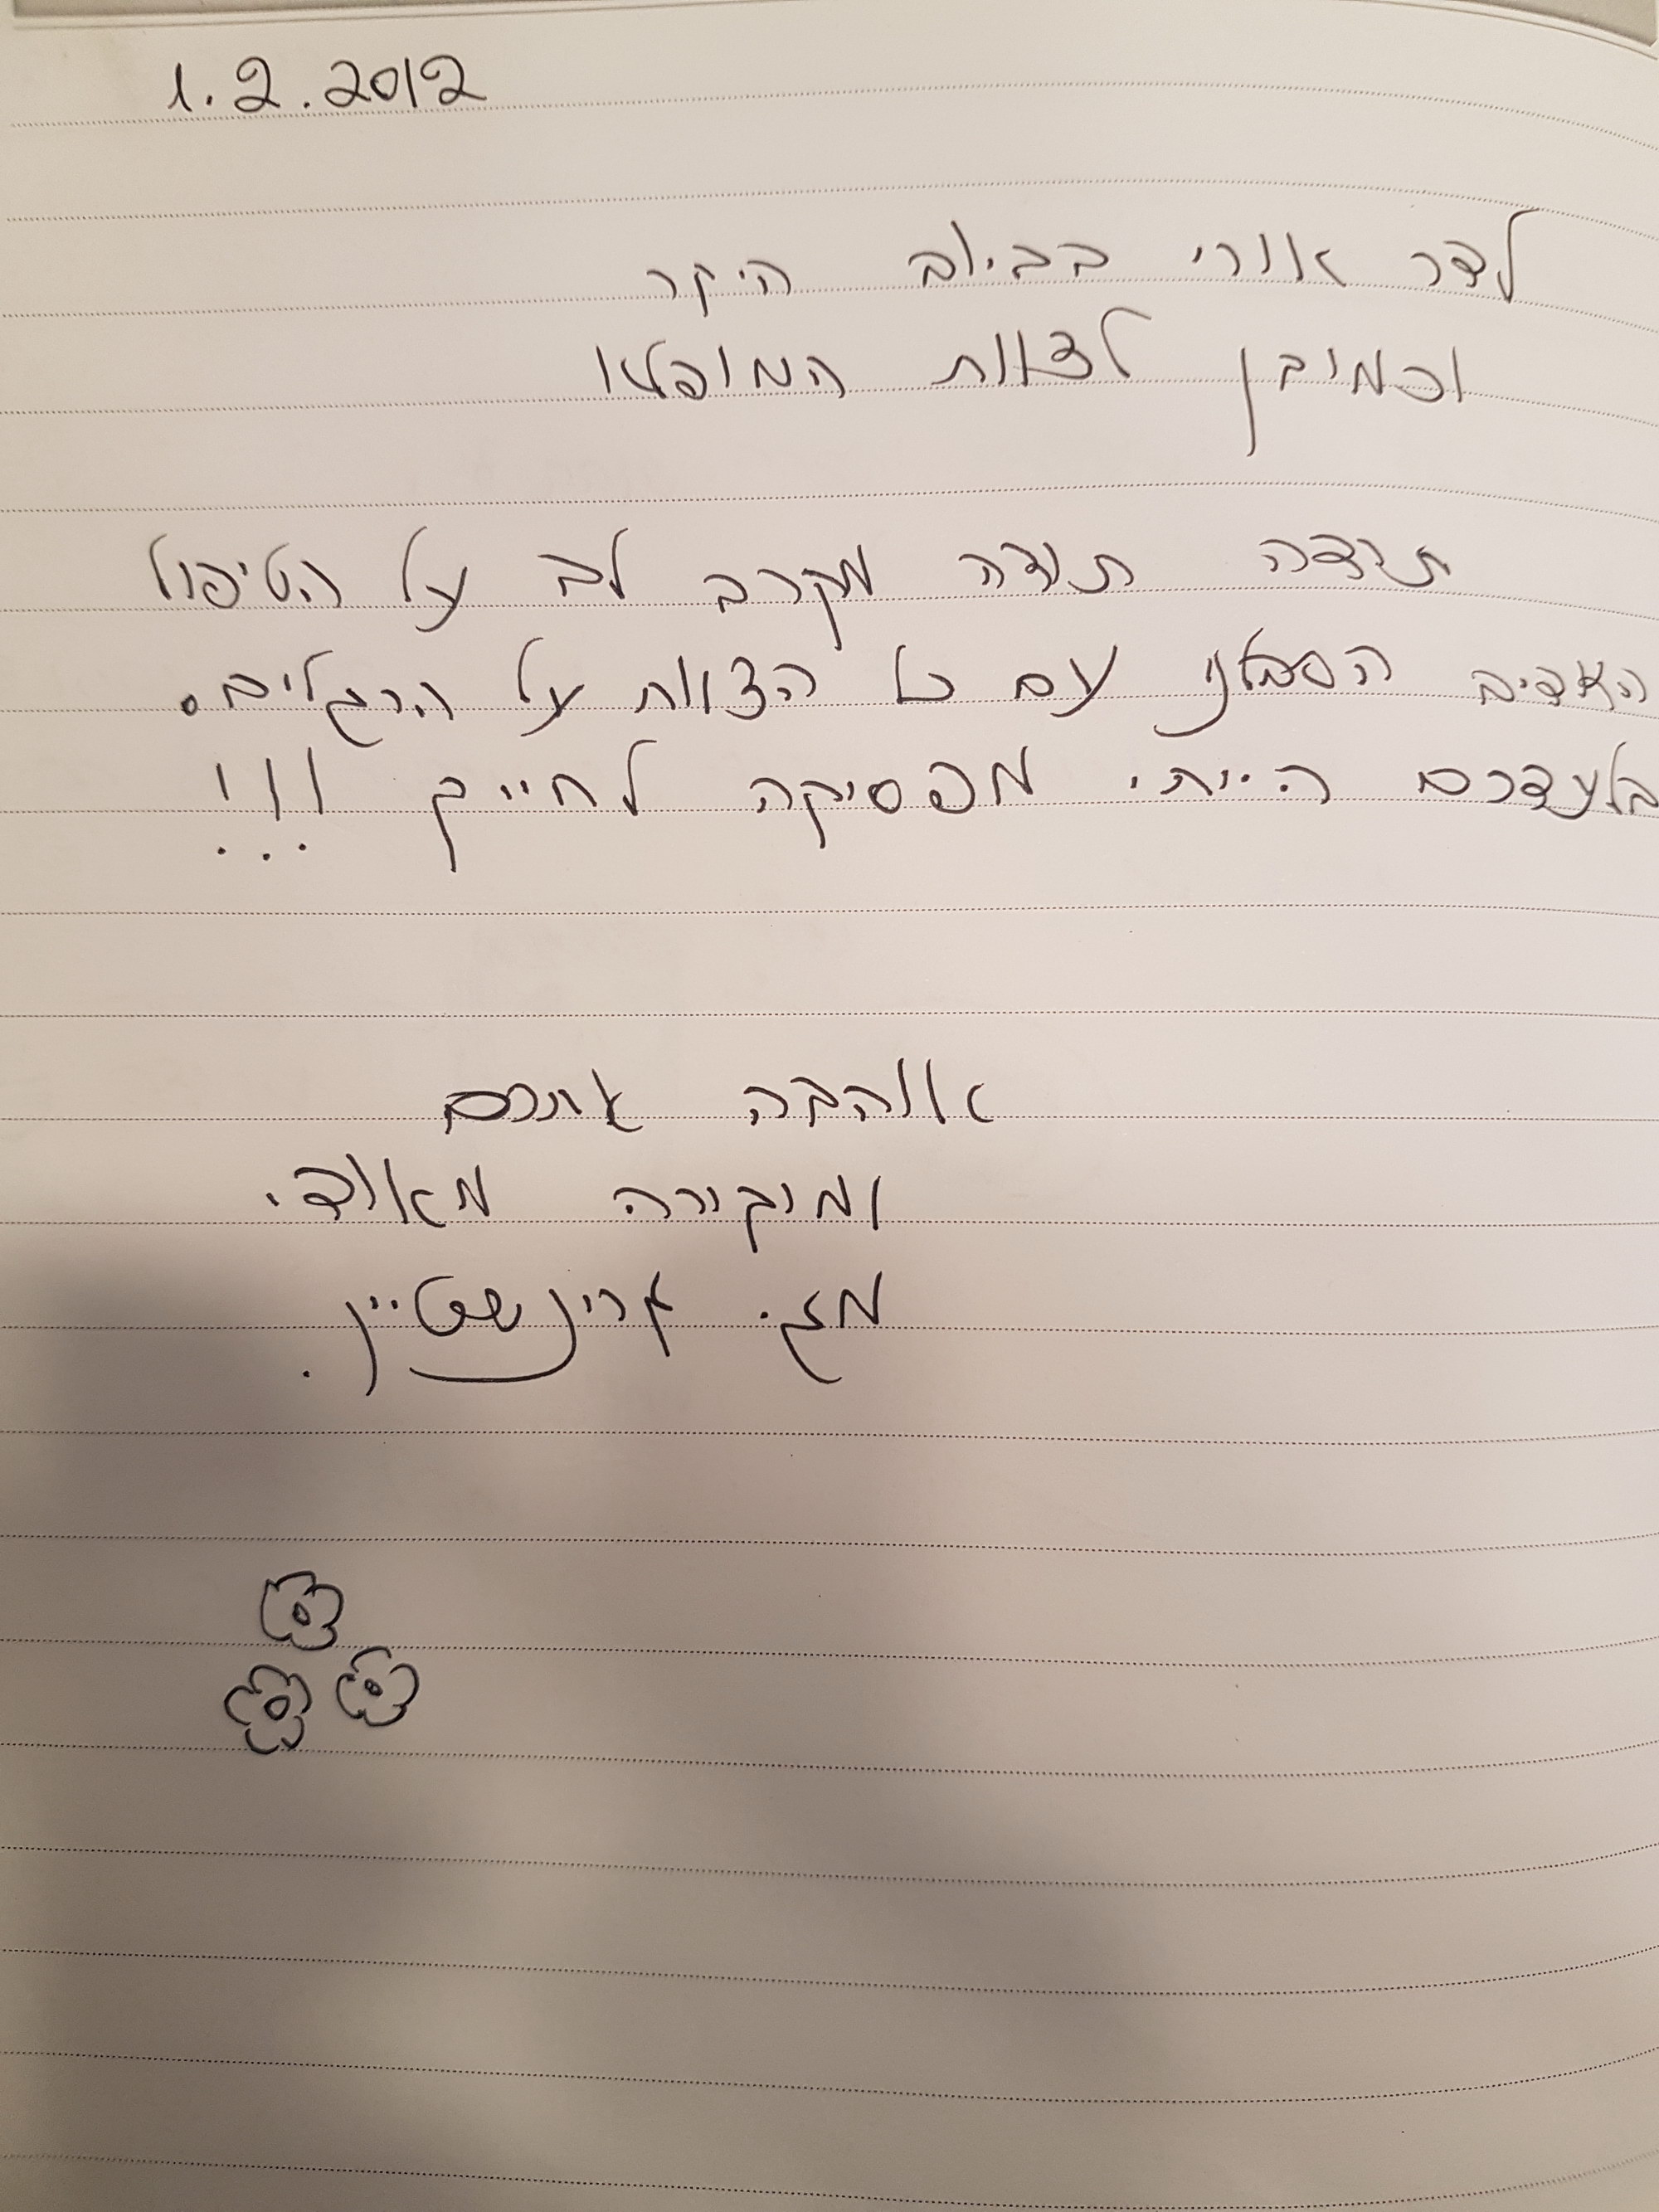 1.2.2012
לדר אורי בביוב היקר
וכמובן לצוות המופלא
תודה תודה מקרב לב על הטיפול
האדיב הסבלני עם כל הצוות על הרגליים.
בלעדכם הייתי מפסיקה לחייך !!!
אוהבה אתכם
ומוקירה מאוד.
גרינשטיין.